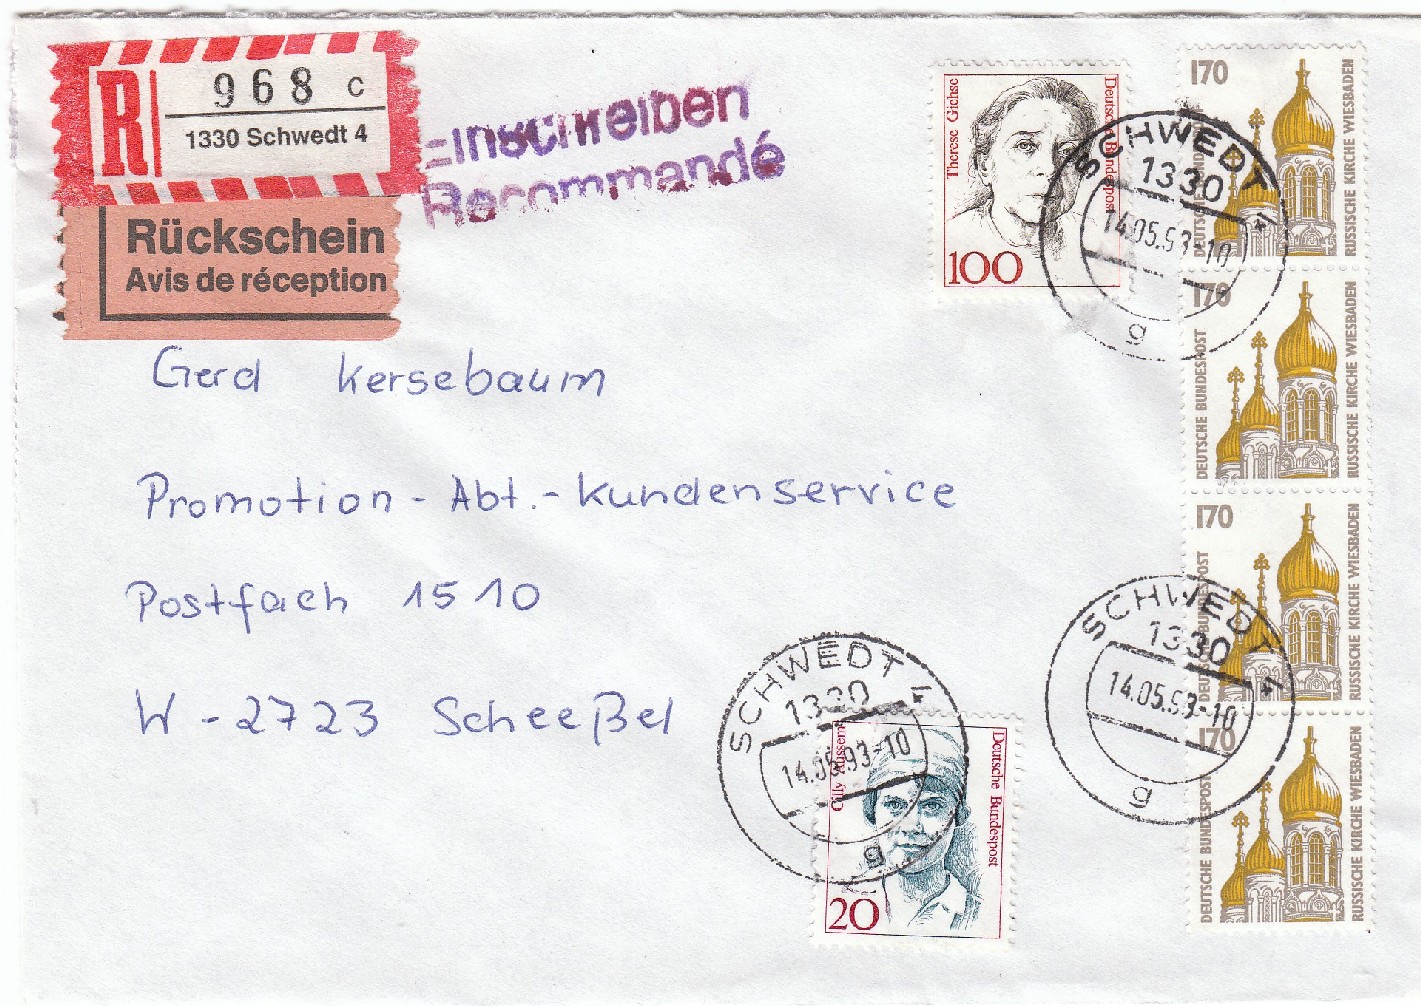 R
968 c
1330 Schwedt 4
Rückschein
Avis de réception
Einschreiben
Recommandé
Gerd Kersebaum
Promotion-Abt.-Kundenservice
Postfach 1510
W-2723 Scheeßel
Therese Giehse
Deutsche Bundespost
100
SCHWEDT 4
1330
14.05.93-10
g
170
DEUTSCHE BUND
RUSSISCHE KIRCHE WIESBADEN
170
DEUTSCHE BUNDESPOST
RUSSISCHE KIRCHE WIESBADEN
170
DEUTSCHE BUNDESPOST
RUSSISCHE KIRCHE WIESBADEN
SCHWEDT 4
1330
14.05.93-10
g
170
DEUTSCHE BUNDESPOST
RUSSISCHE KIRCHE WIESBADEN
SCHWEDT 4
1330
14.05.93-10
g
Cilly Aussem
Deutsche Bundespost
20